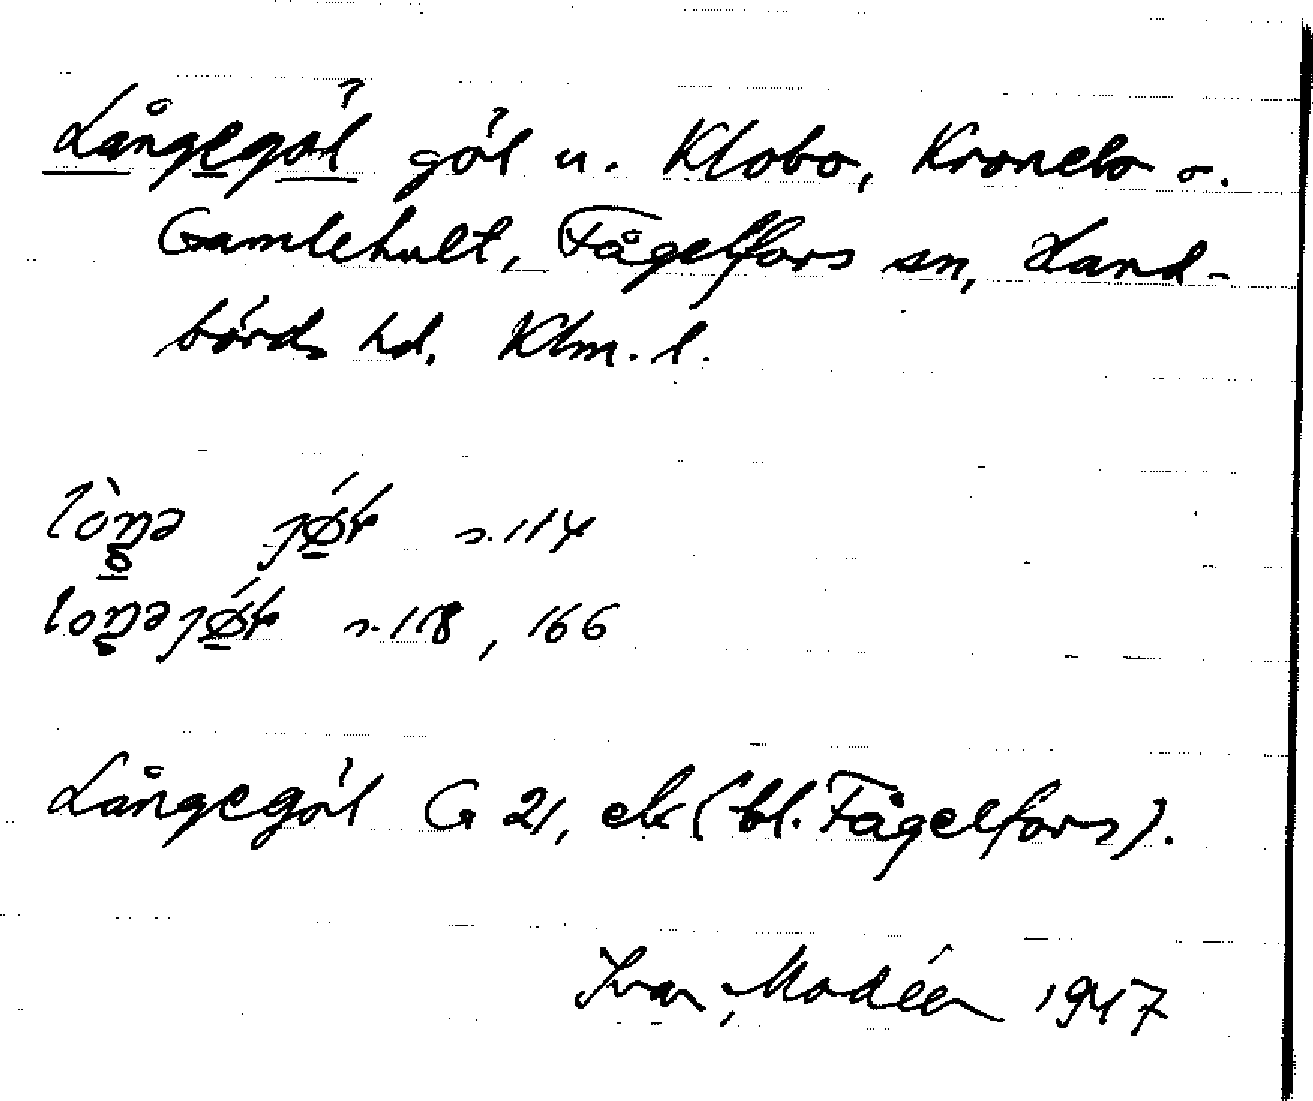 Långegöl göl u. Klobo, Kronebo o.
Gamlehult, Fågelfors sn, Hand-
börds hd. Klm. l.
s. 114
s. 118, 166
Långegöl G 21, ek (bl. Fågelfors).
Ivar Modéer 1947